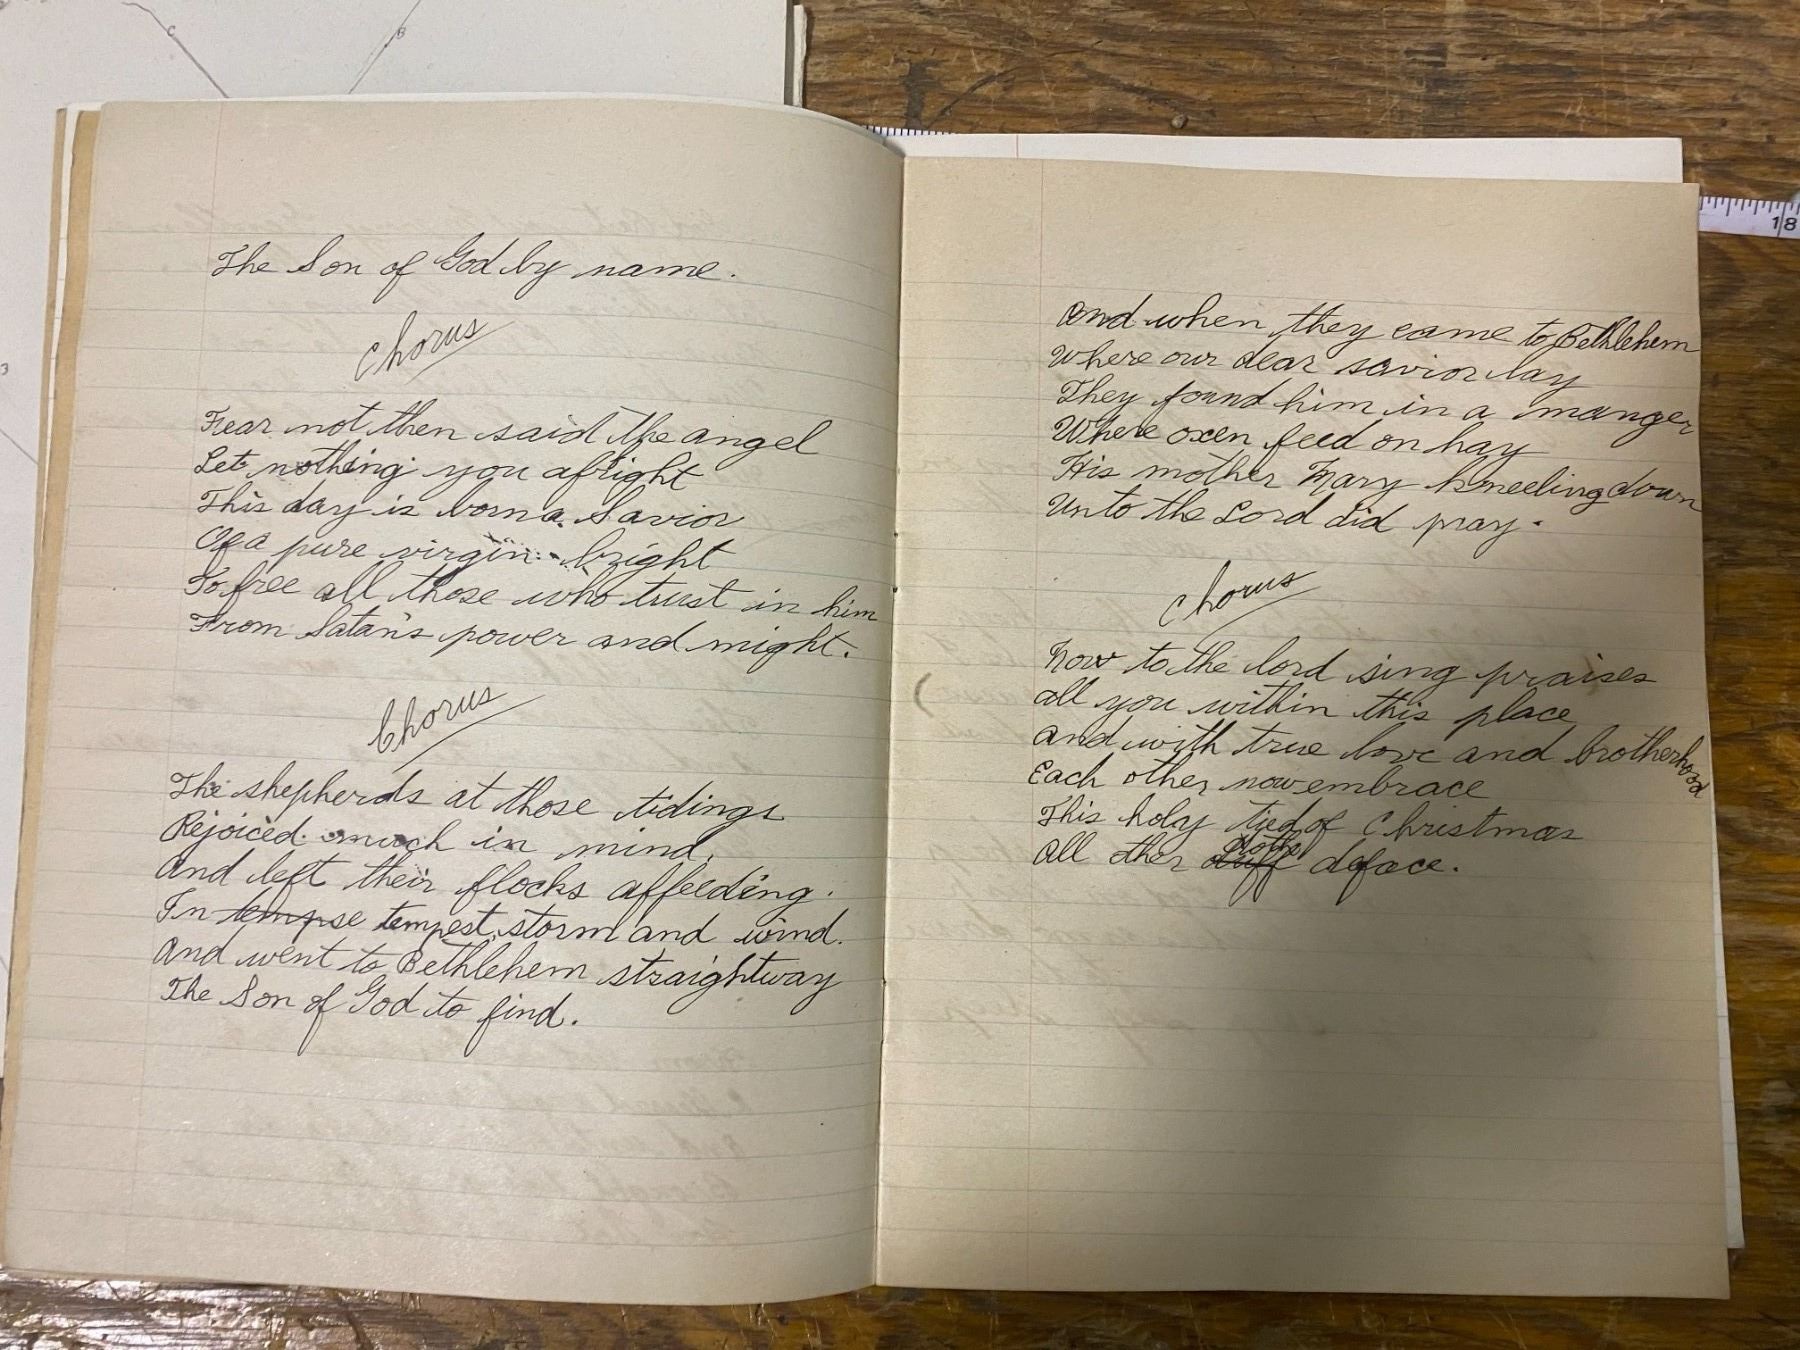 The Son of God by name.
Chorus
Fear not then said the angel
Let nothing you afright
This day is born a Savior
Of a pure virgin bright
To free all those who trust in him
From Satan's power and might.
Chorus
The shepherds at those tidings
Rejoiced much in mind,
And left their flocks affeeding.
In tempse tempest, storm and wind.
And went to Bethlehem straightway
The Son of God to find.
And when they came to Bethlehem
Where our dear savior lay
They found him in a manger
Where oxen feed on hay
His mother Mary kneeling down
Unto the Lord did pray.
Chorus
Now to the lord sing praises
all you within this place
and with true love and brotherhood
Each other now embrace
This holy tied of Christmas
All other deface.
18
C
B
3